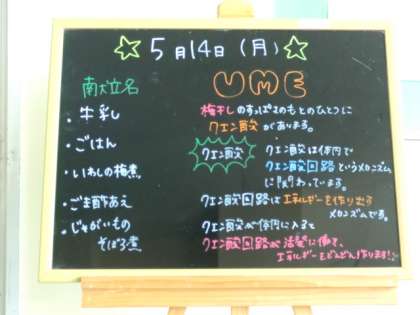 5月14日(月)
献立名
・牛乳
・ごはん
・いわしの梅煮
・ごま酢あえ
・じゃがいもの
そぼろ煮
UME
梅干しのすっぱさのもとのひとつに
クエン酸があります。
クエン酸
クエン酸は体内で
クエン酸回路というメカニズム
に関わっています。
クエン酸回路はエネルギーを作り出す
メカニズムです。
クエン酸が体内に入ると
クエン酸回路が活発に働いて、
エネルギーをどんどん作ります!